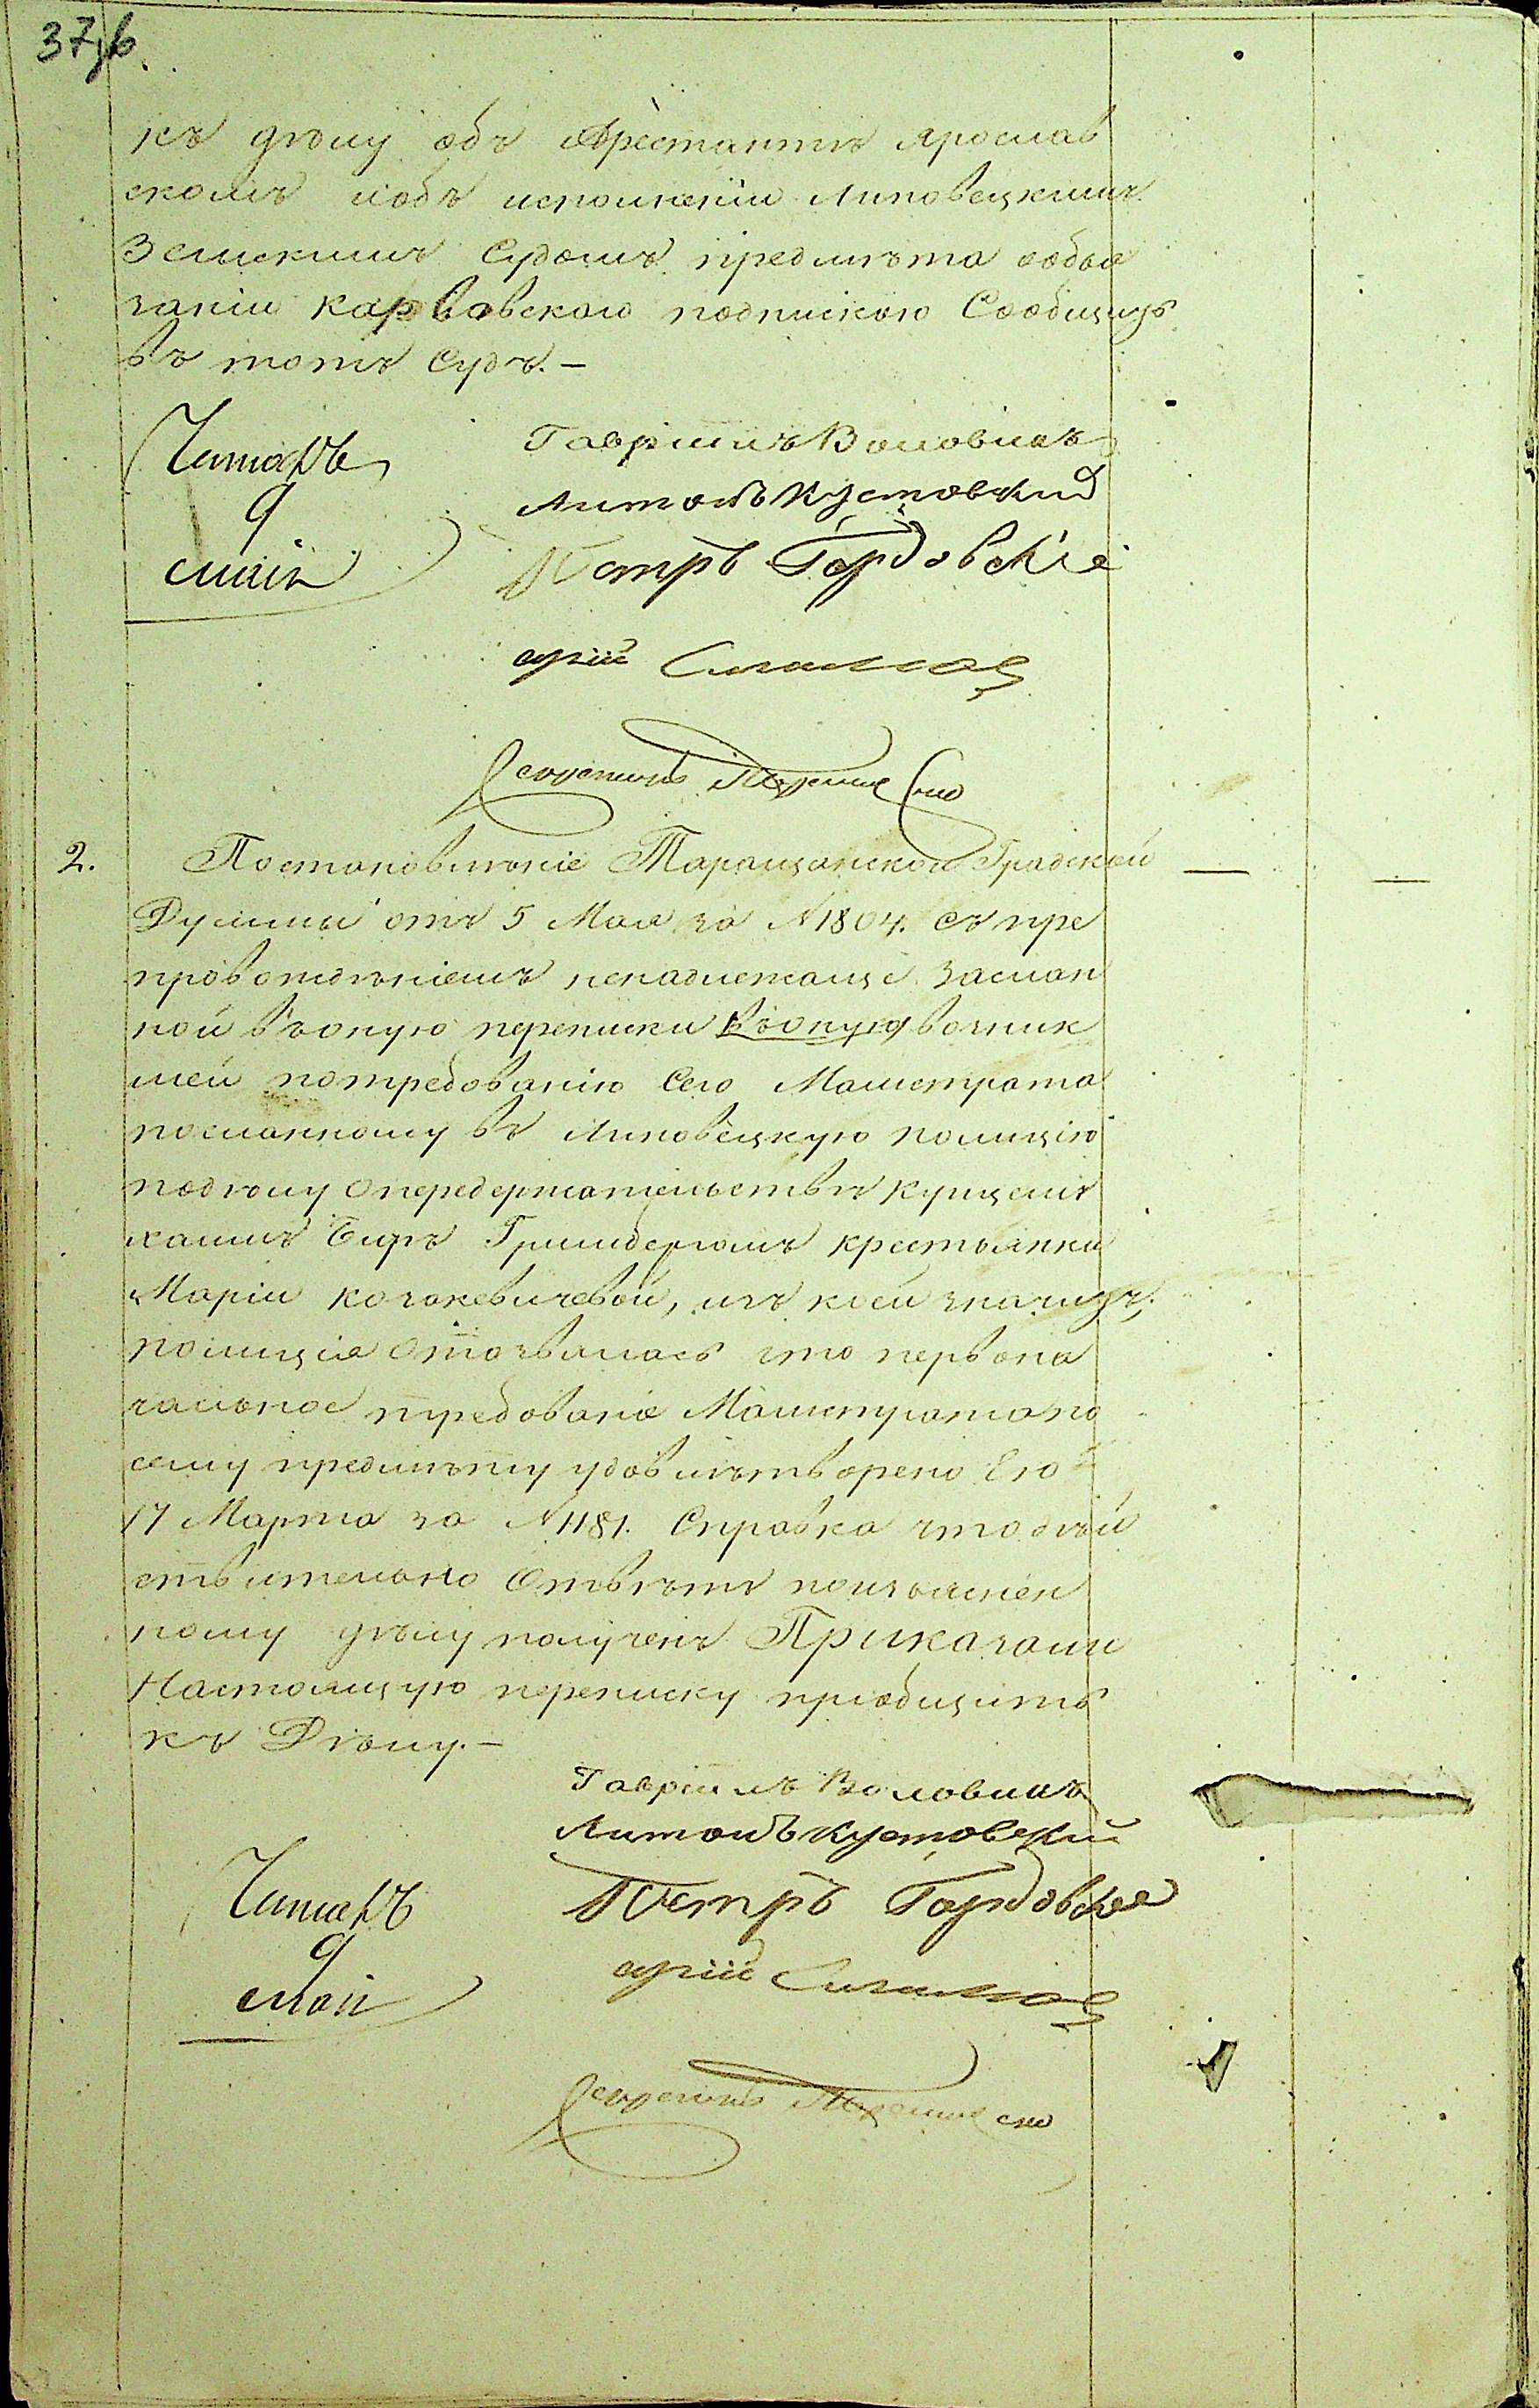 37, б.
къ дѣлу объ Арестантѣ Ярослав
скомъ иобъ исполненіи Липовецкимъ
Земскимъ Судомъ предмѣта ообяза
заніи подпискою Сообщить
въ тотъ Судъ.—
Гавріилъ Воловикъ
Антонъ Кустовскій
Петръ Гордовскій
Читалъ
9
мая
Секретарь
2. Постановлѣніе Таращанской Градской
Думы отъ 5 Мая за № 1804. съ пре
провождѣніемъ ненадлежаще заслан
ной въоную переписки въоную возник
шей потребованію Сего Магистрата
посланному въ Липовецкую полицію
подѣлу опередержательствѣ купцемъ
Гринбергомъ крестьянки
Маріи Козакевичевой, изъ коей значитъ,
полиція отозвалась что первона
чальное требованіе Магистрата по
сему предмѣту удовлѣтворено Ею
17 Марта за № 1181. Справка что дѣй
ствительно Отвѣтъ поизъяснен
ному дѣлу полученъ Приказали
Настоящую переписку пріобщить
къ Дѣлу.—
Гавріилъ Воловикъ
Антонъ Кустовскій
Читалъ
Петръ Гордовскій
9
мая
Секретарь